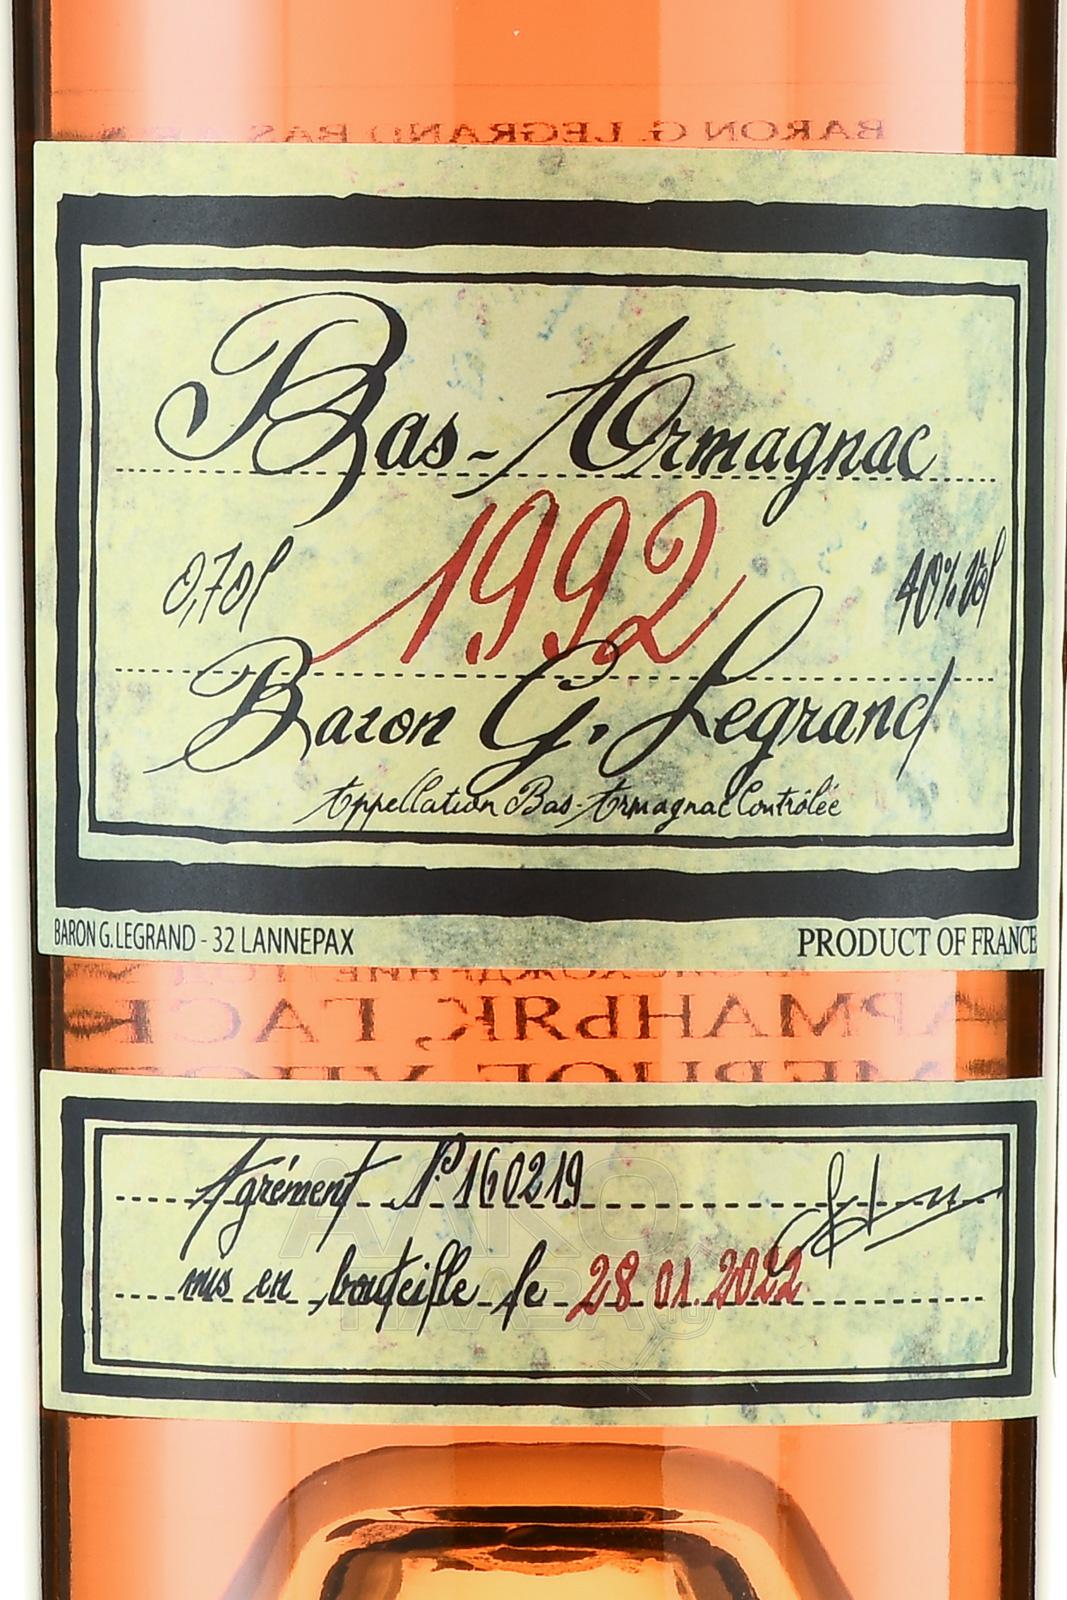 BARON G. LEGRAND BAS
Bas-Armagnac
1992
0,70l
40% Vol
Baron G. Legrand
Appellation Bas-Armagnac Contrôlée
BARON G. LEGRAND - 32 LANNEPAX
PRODUCT OF FRANCE
АРМАНЬЯК, ГАСК
Agrément N° 160219
mis en bouteille le 28.01.2022